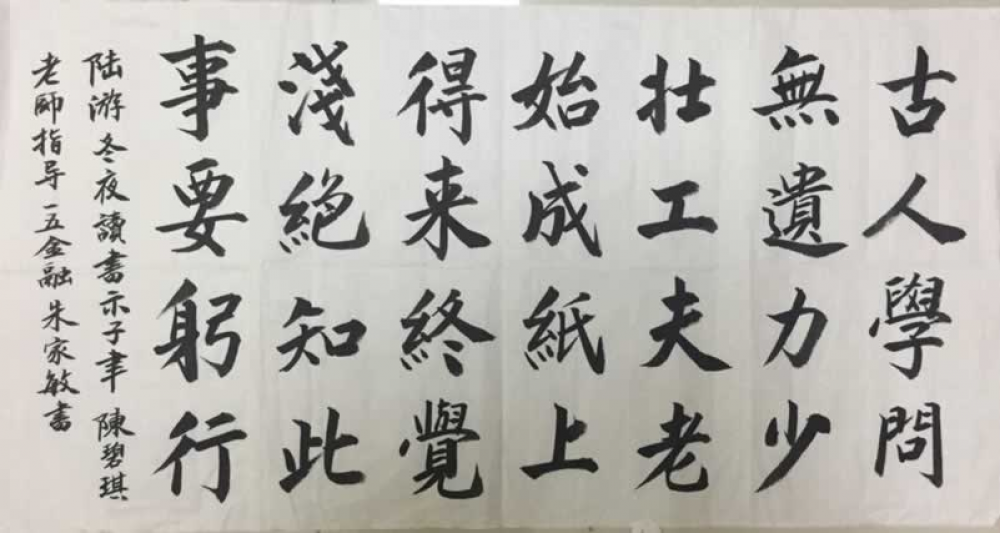 古人學問
無遺力少
壯工夫老
始成紙上
得来終覺
淺絕知此
事要躬行
陆游冬夜讀書示子聿 陳碧琪
老師指导一五金融朱家敏書